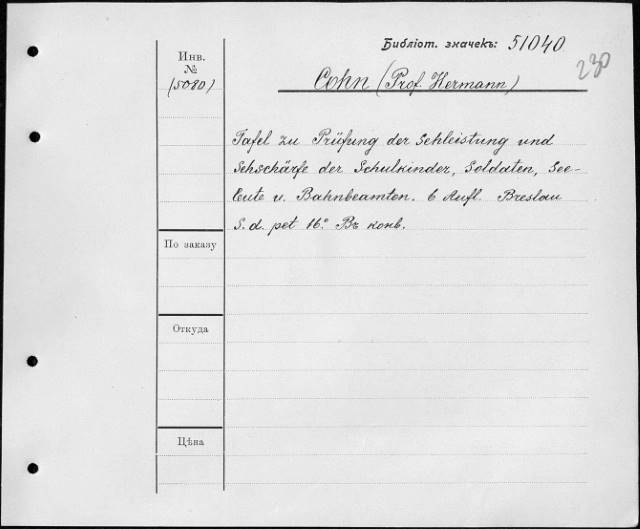 Библіот. значекъ: 51040
230
Инв.
№
(5080)
Cohn (Prof. Hermann)
Tafel zu Prüfung der Sehleistung und
Sehschärfe der Schulkinder, Soldaten, See-
leute u. Bahnbeamten. 6 Aufl. Breslau
S. d. pet 16.° Въ конв.
По заказу
Откуда
Цѣна